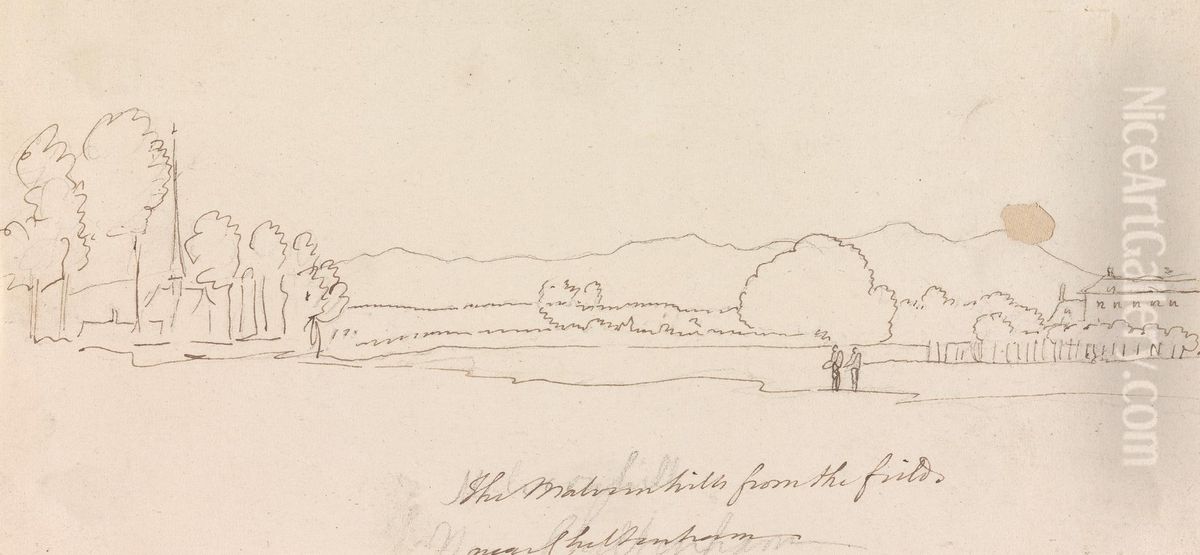 The Malvern hills from the fields
near Cheltenham
NiceArtGallery.com